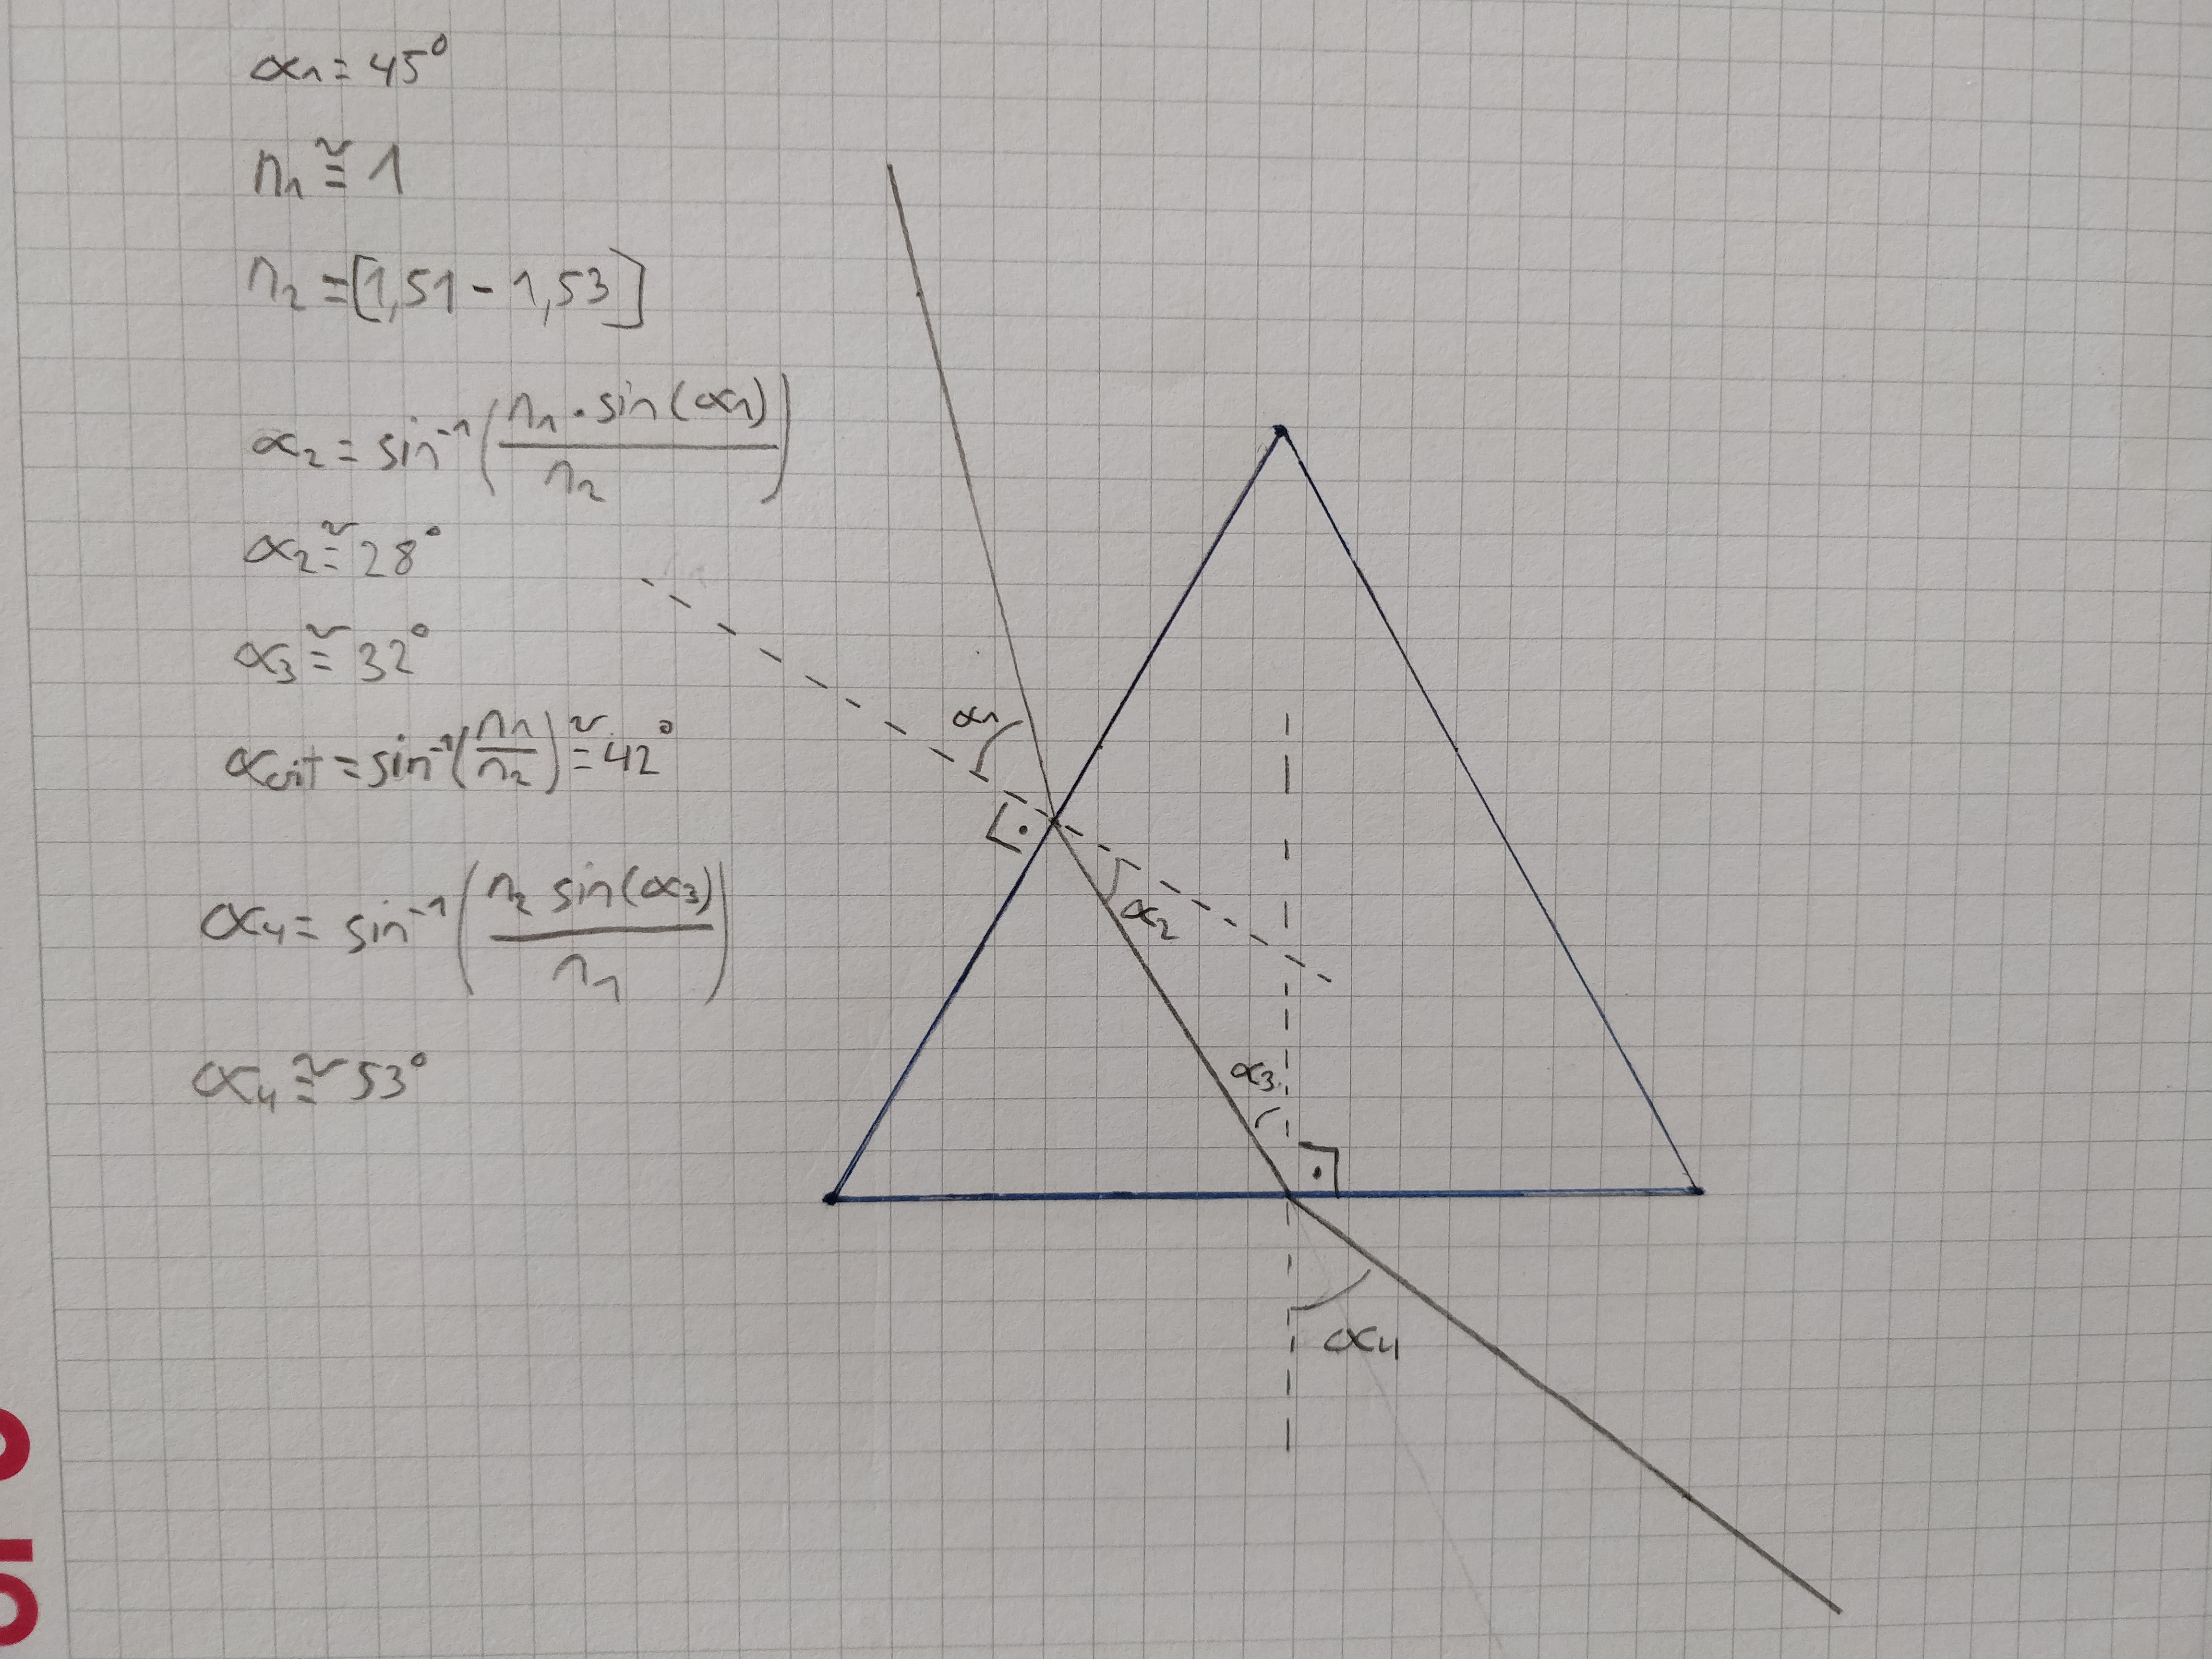 α₁ = 45°
n₁ ≅ 1
n₂ = [1,51 - 1,53]
α₂ = sin⁻¹(n₁ · sin(α₁) / n₂)
α₂ ≅ 28°
α₃ ≅ 32°
αcrit = sin⁻¹(n₁/n₂) ≅ 42°
α₄ = sin⁻¹(n₂ sin(α₃) / n₁)
α₄ ≅ 53°
α₁
α₂
α₃
α₄